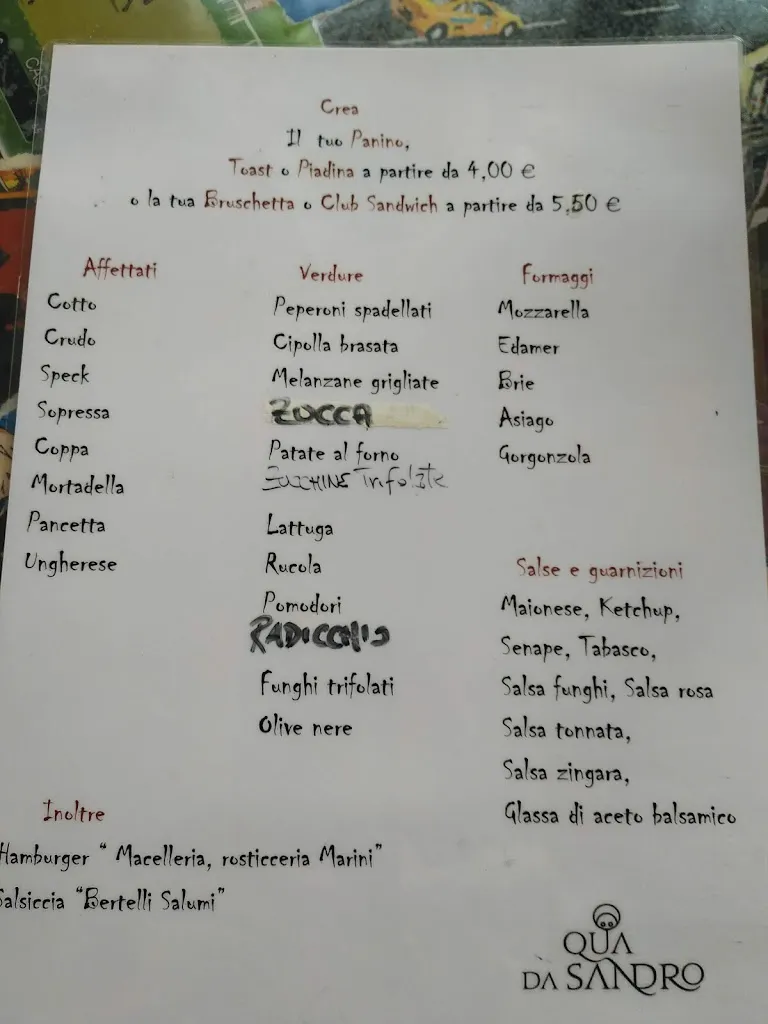 Crea
Il tuo Panino,
Toast o Piadina a partire da 4,00 €
o la tua Bruschetta o Club Sandwich a partire da 5,50 €
Affettati
Cotto
Crudo
Speck
Sopressa
Coppa
Mortadella
Pancetta
Ungherese
Verdure
Peperoni spadellati
Cipolla brasata
Melanzane grigliate
ZUCCA
Patate al forno
ZUCCHINE Trifolate
Lattuga
Rucola
Pomodori
RADICCHIO
Funghi trifolati
Olive nere
Formaggi
Mozzarella
Edamer
Brie
Asiago
Gorgonzola
Salse e guarnizioni
Maionese, Ketchup,
Senape, Tabasco,
Salsa funghi, Salsa rosa
Salsa tonnata,
Salsa zingara,
Glassa di aceto balsamico
Inoltre
Hamburger “ Macelleria, rosticceria Marini”
Salsiccia “Bertelli Salumi”
QUA
DA SANDRO